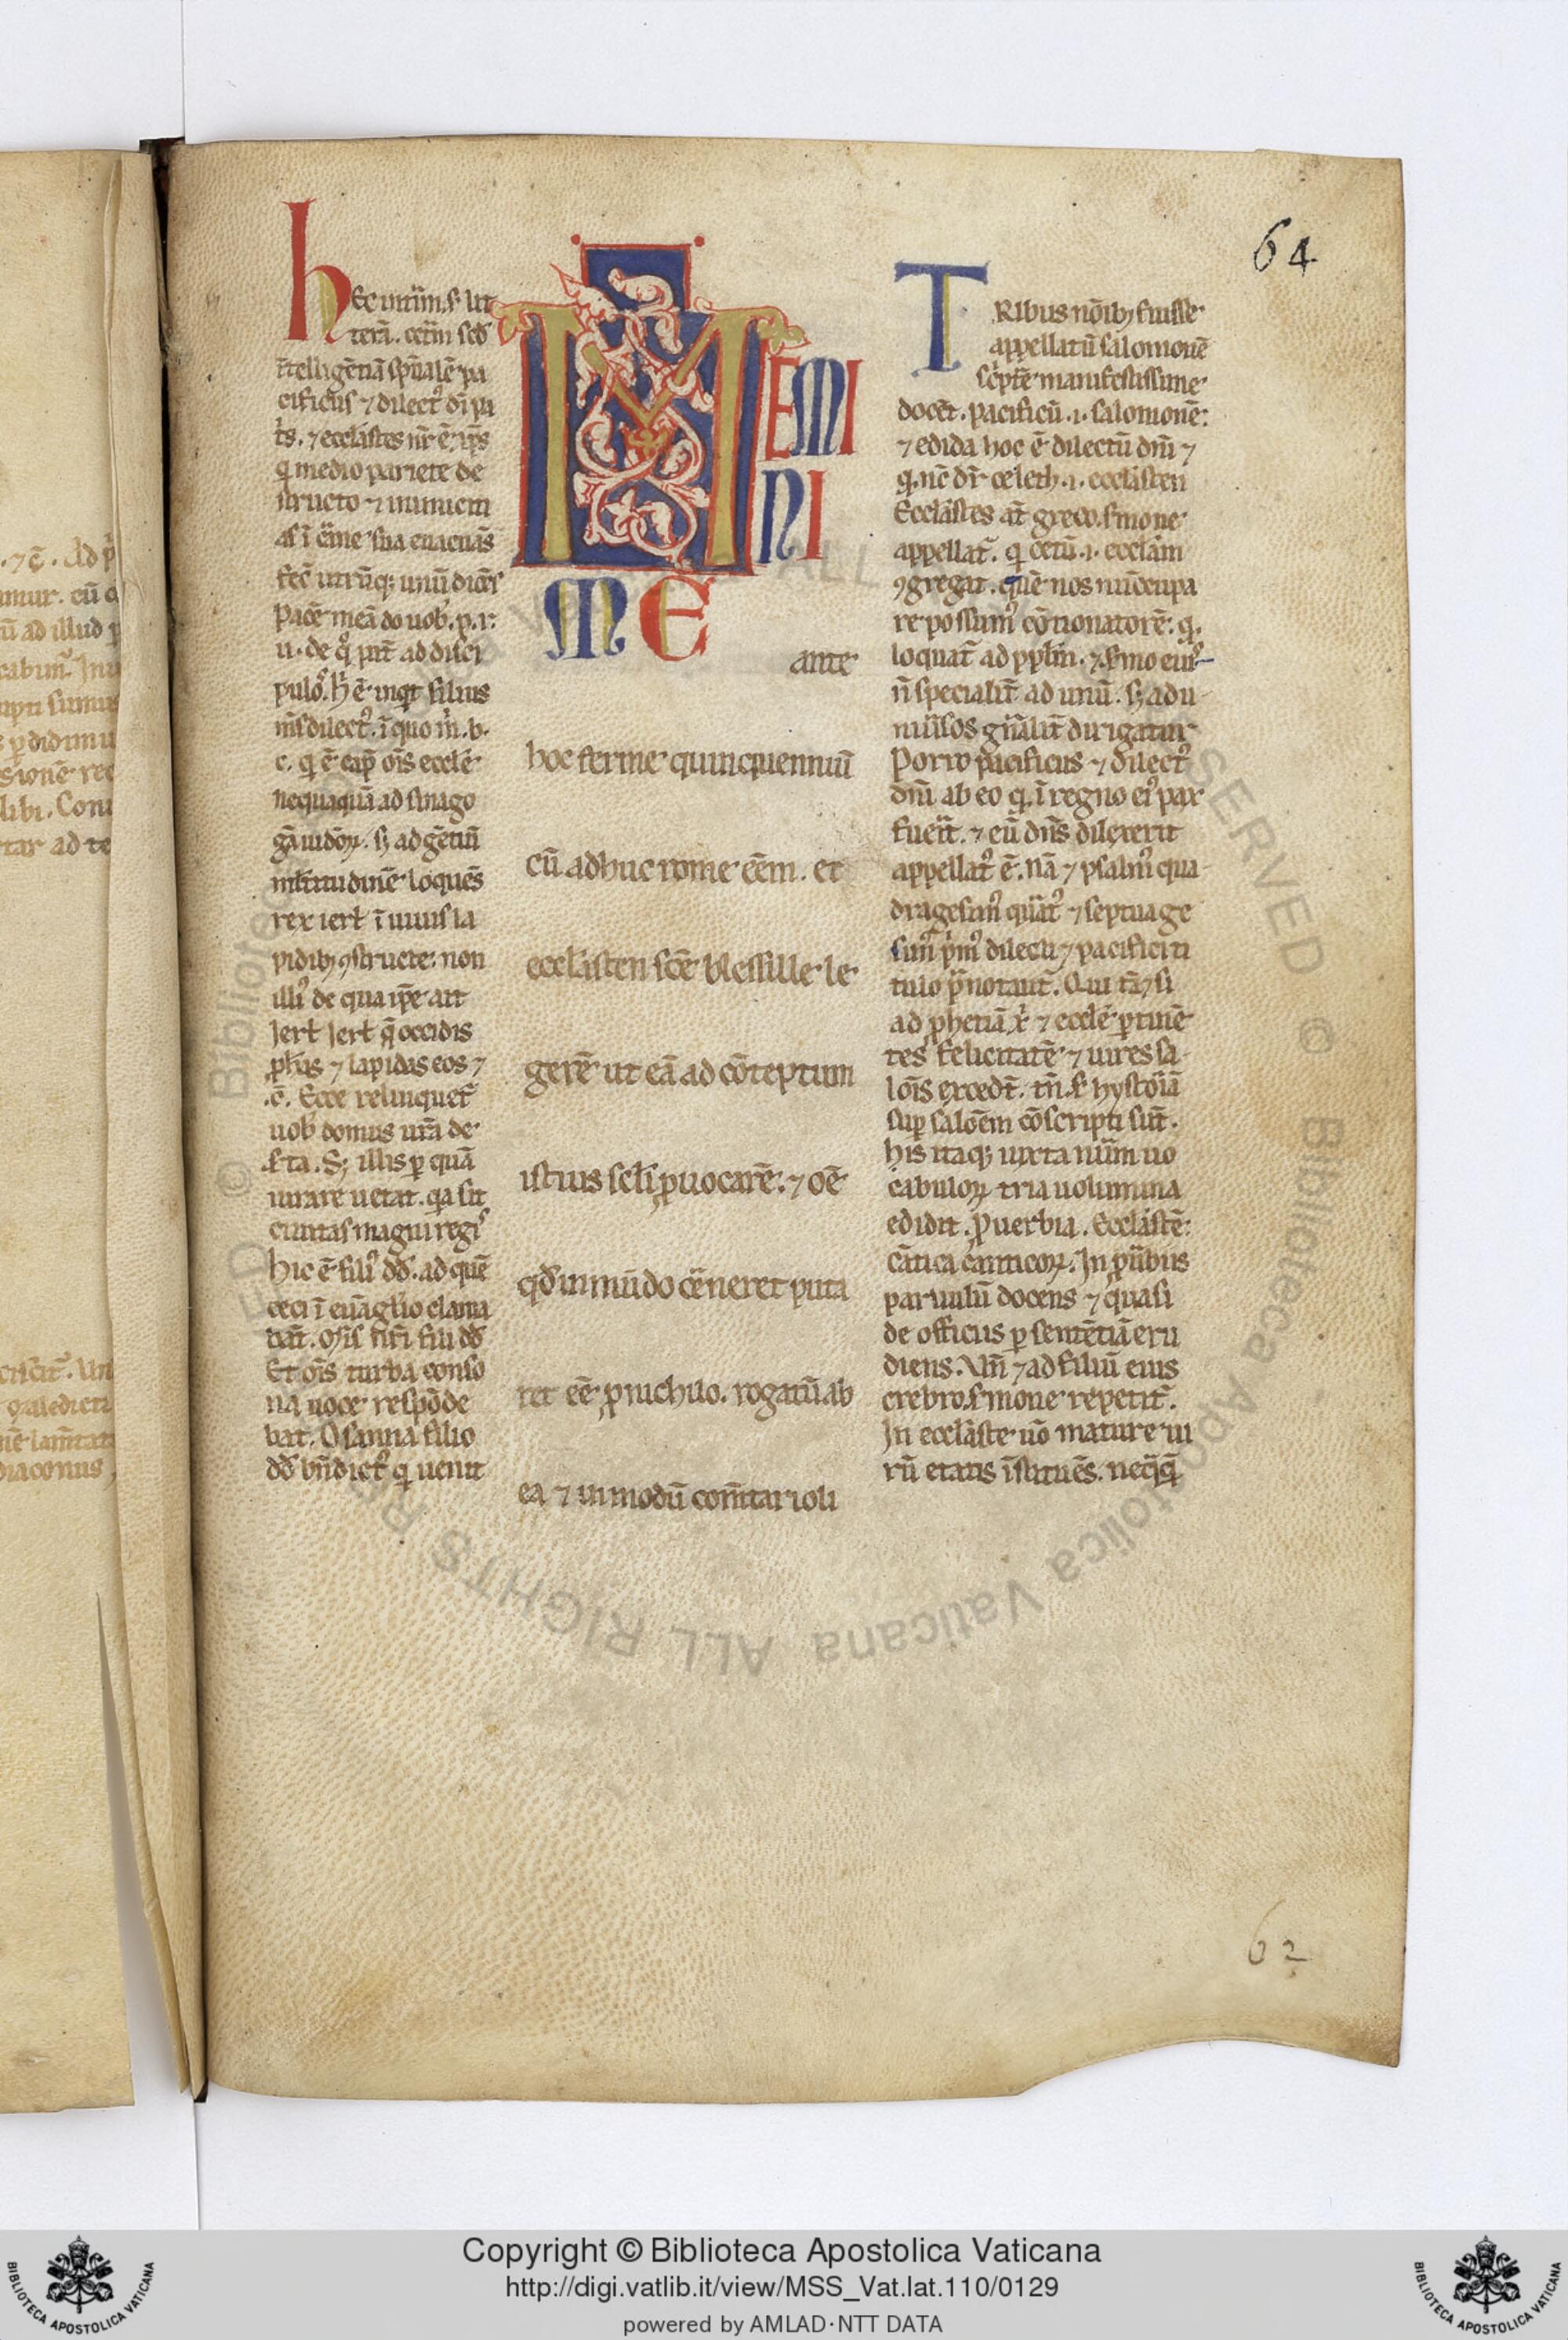 64
hEc int̄im s. lit
terā. cet̄im scđ
ītelligētiā sp̄ualē pa
cificus ⁊ dilect᷒ di pa
t̄s. ⁊ eccl̄astes nr̄ ē. xp̄s
q̇ medio pariete de
structo ⁊ inimicici
as ī c̄ine sua euacuās
fec̄ utrūq; unū dicēs
pacē meā do uob̄. p. r.
u. de q̊ pat̄ ad disci
pulos. hic ē inq̇t filius
m̄s dilect᷒. ī quo m̄. b.
c. q̇ ē cap̄ ois eccl̄e
nequaquā ad sinago
gā iudōꝝ. s; ad gētiū
ml̄titudinē loquēs
rex ierl̄ ī uiuis la
pidib; ꝯstructe: non
illi᷒ de qua ip̄e ait
Jerl̄ Jerl̄ q̄ occidis
ꝓph̄as ⁊ lapidas eos ⁊
.c̄. Ecce relinquet̄
uob̄ domus ur̄a de
s̄ta. S; illis ꝑ quā
iurare uetat. qa sit
ciuitas magni regis
hic ē fili᷒ dđ. ad quē
ceci ī euāgl̄io clama
bāt.
Et oīs turba conso
na uoce respōde
bat. Osanna filio
dđ bn̄dict᷒ q̇ uenit
MEMI
NI
ME
ante
hoc ferme quinquenniū
cū adhuc rome eēm. et
eccl̄asten sc̄e blessille le
gerē ut eā ad cōteptum
istius scl̄i ꝓuocarē. ⁊ oē
qđ in mūdo c̄neret puta
ret eē ꝓ nichilo. rogatū ab
ea ⁊ in modū com̄tarioli
TRIbus nōib; fuisse
appellatū salomonē
sc̄ptē manifestissime
docēt. pacificū .i. salomonē:
⁊ edida hoc ē dilectū dn̄i ⁊
q. nc̄ dr̄ celeth .i. eccl̄asten
Eccl̄astes at̄ greco s̄mone
appellat̄. q̇ cetū .i. eccl̄am
ꝯgregat. quē nos nūccupa
re possum᷒ cōtionatorē: q.
loquat̄ ad ppl̄m. ⁊ s̄mo eius
n̄ specialit̄ ad unū. s; ad u
niūsos gn̄alit̄ dirigatur
Porro pacificus ⁊ dilect᷒
dn̄i ab eo q. ī regno ei᷒ pax
fuerit. ⁊ eū dn̄s dilexerit
appellat᷒ ē. nā ⁊ psalm᷒ qua
dragesim᷒ quart᷒ ⁊ septuage
sim᷒ pm᷒ dilecti ⁊ pacifici ti
tulo p̄notant̄. Qui tā⁊si
ad ꝓphetiā x̄ ⁊ eccl̄e ꝑtinē
tes felicitatē ⁊ uires sa
lōis excedt̄. tn̄. s. hystoiā
sup salōem cōscripti sūt.
his itaq; iuxta nūm uo
cabuloꝝ tria uolumina
edidit. ꝓuerbia. Eccl̄astē:
cātica canticoꝝ. In ꝓū̄bus
paruulū docens ⁊ quasi
de officiis ꝑ sentētiā eru
diens. Vn̄ ⁊ ad filiū eius
crebro s̄mone repetit̄.
In eccl̄aste uō mature ui
rū etatis īstituēs. neq̄q̄
62
Copyright © Biblioteca Apostolica Vaticana
http://digi.vatlib.it/view/MSS_Vat.lat.110/0129
powered by AMLAD·NTT DATA
BIBLIOTECA APOSTOLICA VATICANA
BIBLIOTECA APOSTOLICA VATICANA